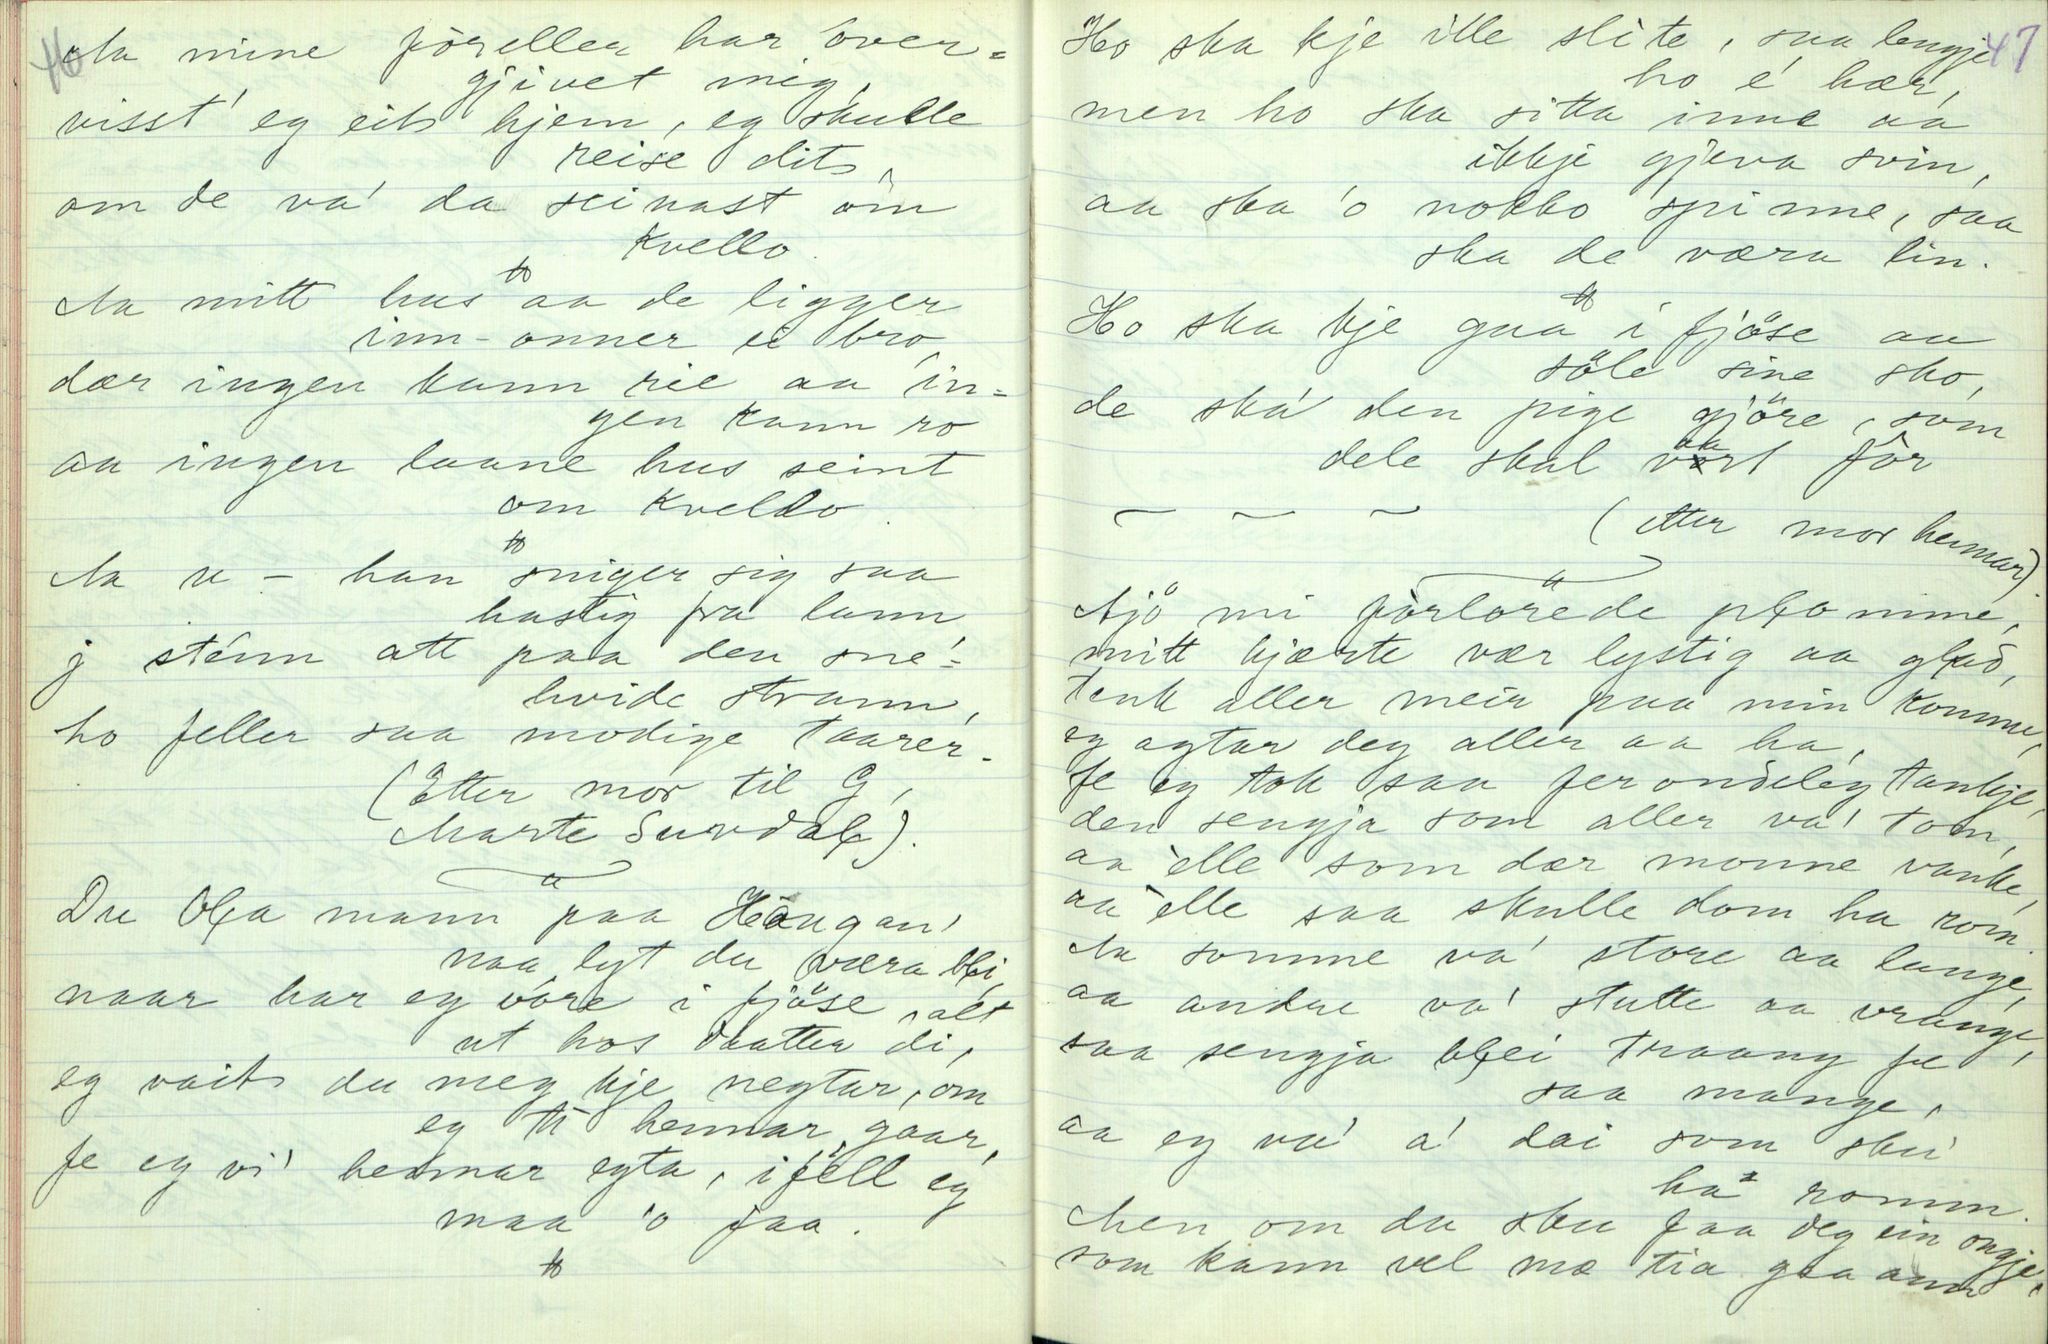 46
Aa mine fòreller har òver=
gjivet mig,
visst' eg eits hjem, eg skulle
reise dits,
om de va' da seinast òm
kvello.
Aa mitt hus aa de ligger
inn-onner ei bro,
dær ingen kann rie aa in=
gen kann ro
aa ingen laane hus seint
om kveldo.
Aa u – han sniger sig saa
hastig fra lann
j sténn att paa den sne'=
hvide strann,
ho feller saa modige taarer.
(Etter mor til G,
Marte Survdal).
Du Ola mann paa Haugan'
naa lyt du væra bli,
naar har eg vòre i fjöse, alt
ut hos datter di,
eg vaits du meg kje negtar, om
eg ti hennar gaar,
fe eg vi' hennar egta, ifell eg
maa 'o faa.
47
Ho ska kje ille slite, saa lengje
ho e' hær,
men ho ska sitta inne aa
ikkje gjeva svin,
aa ska 'o nokko spinne, saa
ska de væra lin.
Ho ska kje gaa i fjöse aa
söle sine sko,
de ska' den pige gjöre, som
dele skal vaart fòr
~ ~ ~ (etter mor hennar)
Ajö mi fòrlorede plomme,
mitt hjærte vær lystig aa glad,
tenk aller meir paa min komme,
eg agtar deg aller aa ha,
fe eg tok saa ferondeleg tankje,
den sengja som aller va' tom,
aa elle som dær monne vanke,
aa elle saa skulle dom ha rom.
Aa somme va' store aa lange,
aa andre va' stutte aa vrange,
saa sengja blei traang fe
saa mange,
aa eg va' a' dai som sku'
ha romm.
Men om du sku faa deg ein ongje,
som kann vel mæ tia gaa ann